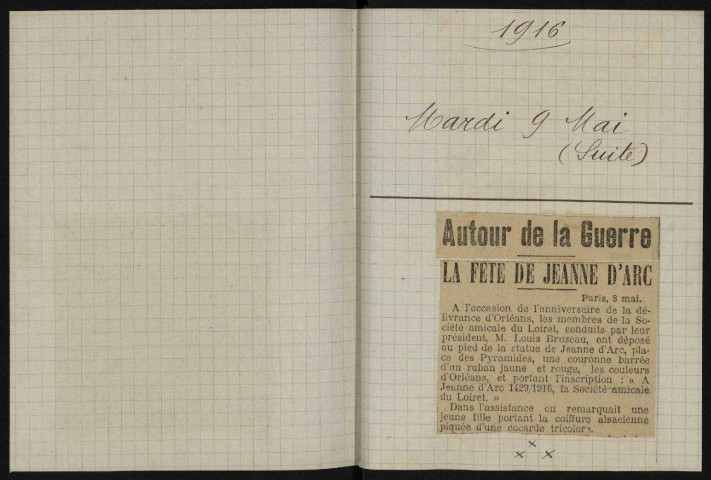 1916
Mardi 9 Mai
(Suite)
Autour de la Guerre
LA FETE DE JEANNE D'ARC
Paris, 8 mai.
A l'occasion de l'anniversaire de la dé-
livrance d'Orléans, les membres de la So-
ciété amicale du Loiret, conduits par leur
président, M. Louis Bruzeau, ont déposé
au pied de la statue de Jeanne d'Arc, pla-
ce des Pyramides, une couronne barrée
d'un ruban jaune et rouge, les couleurs
d'Orléans, et portant l'inscription : « A
Jeanne d'Arc 1429/1916, la Société amicale
du Loiret. »
Dans l'assistance on remarquait une
jeune fille portant la coiffure alsacienne
piquée d'une cocarde tricolore.
x x x